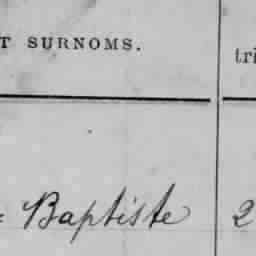 T SURNOMS.
tri
Baptiste 2